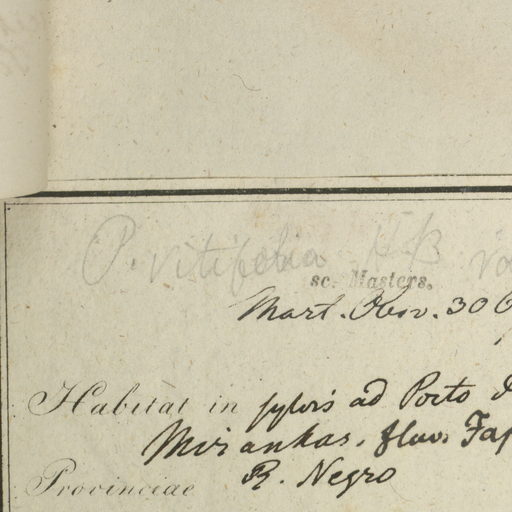 P. vitifolia HB
sc. Masters.
Mart. Obs. 30
Habitat in sylvis ad Porto
Mirankas. fluv.
Provinciae R. Negro